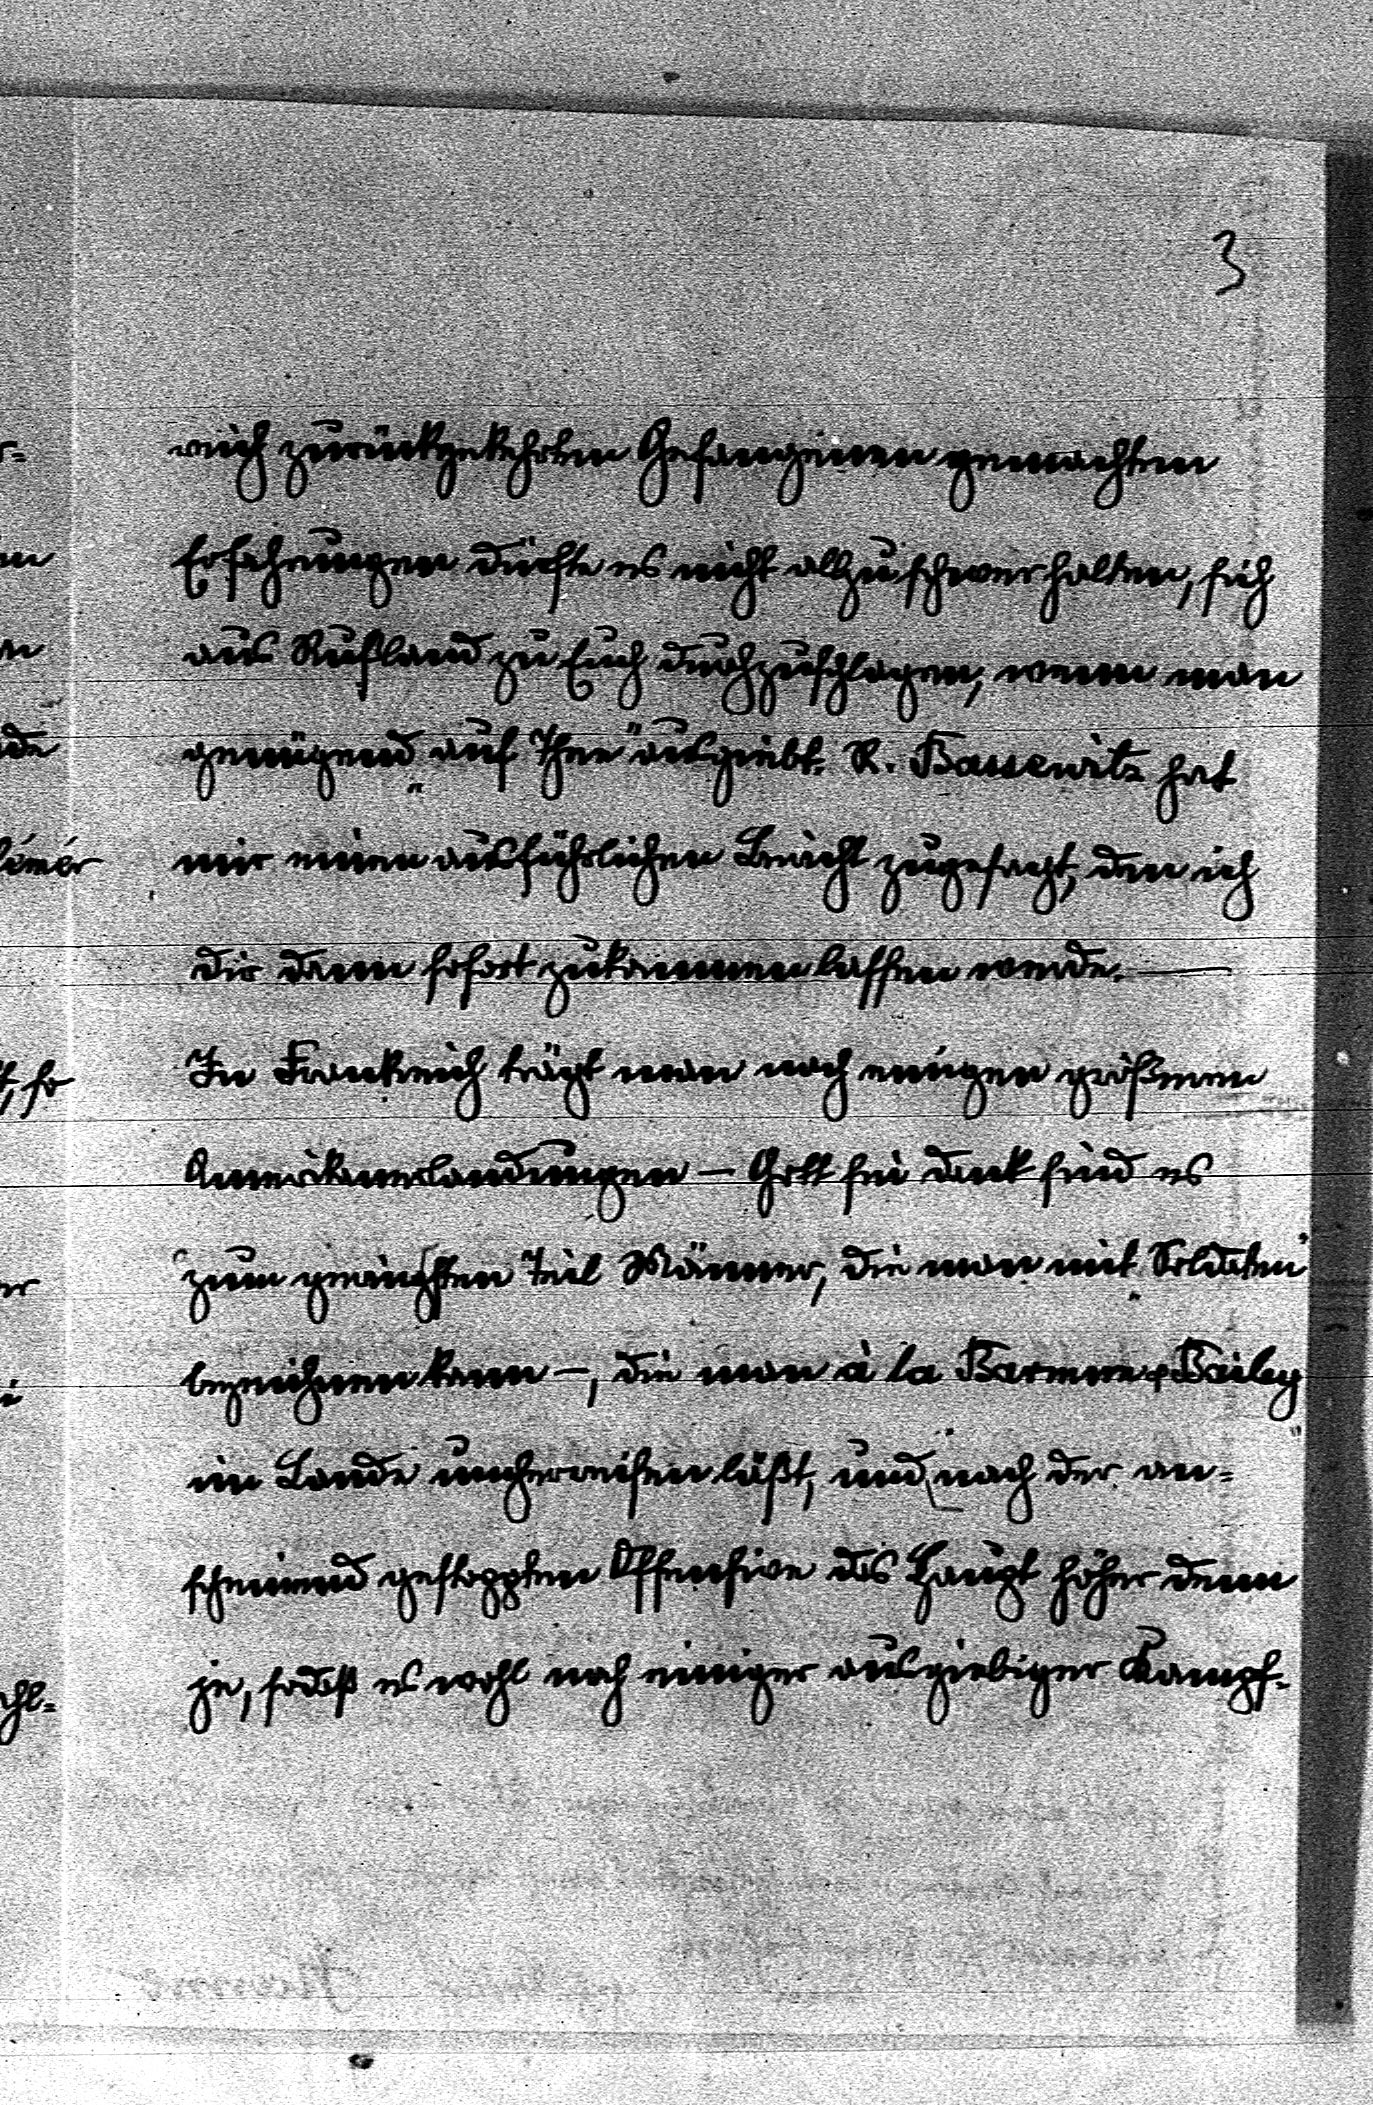 3
reich zurückgekehrten Gefangenen gemachten
Erfahrungen dürfte es nicht allzu schwer halten, sich
aus Rußland zu Euch durchzuschlagen, wenn man
genügend „auf Thee" ausgiebt. R. Bassewitz hat
mir einen ausführlichen Bericht zugesagt, den ich
dir dann sofort zukommen lassen werde. —
In Frankreich trägt man nach einigen größeren
Amerikanerlandungen – Gott sei dank sind es
zum geringsten Teil Männer, die man mit „Soldaten"
bezeichnen kann –, die man à la Barnum & Bailey
im Lande umherreisen läßt, und nach der an-
scheinend gestoppten Offensive das Haupt höher denn
je, sodaß es wohl noch einiger ausgiebiger Kampf-